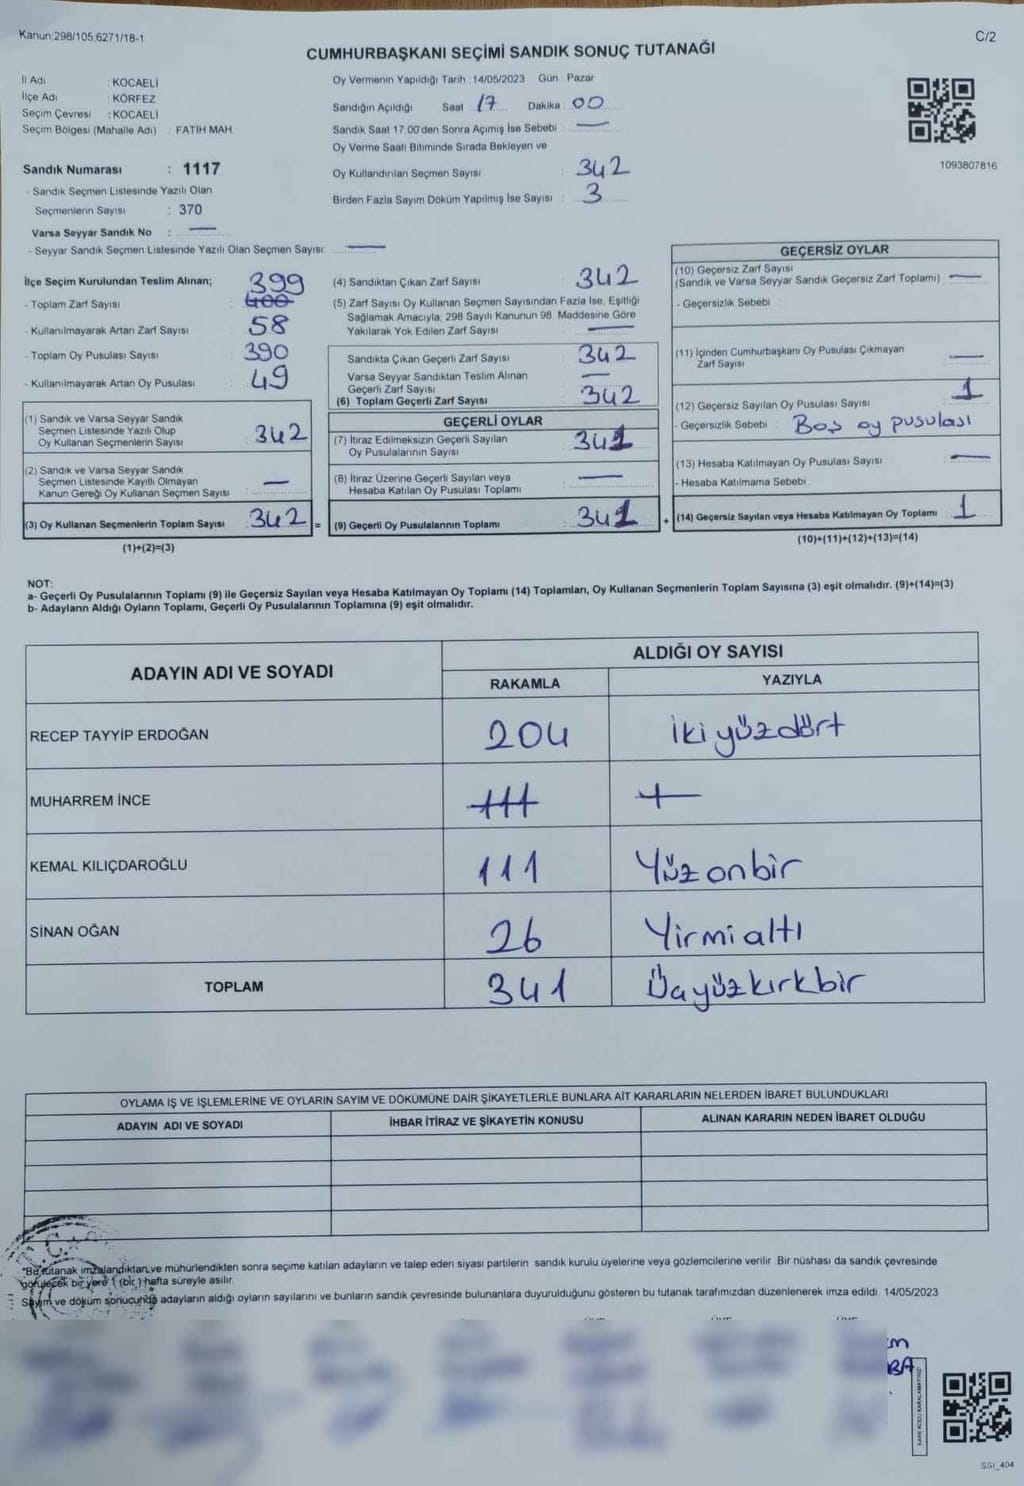 Kanun;298/105;6271/18-1
C/2
CUMHURBAŞKANI SEÇİMİ SANDIK SONUÇ TUTANAĞI
İl Adı : KOCAELİ
İlçe Adı : KÖRFEZ
Seçim Çevresi : KOCAELİ
Seçim Bölgesi (Mahalle Adı) : FATİH MAH.
Sandık Numarası : 1117
- Sandık Seçmen Listesinde Yazılı Olan
Seçmenlerin Sayısı : 370
Varsa Seyyar Sandık No : —
- Seyyar Sandık Seçmen Listesinde Yazılı Olan Seçmen Sayısı: —
Oy Vermenin Yapıldığı Tarih : 14/05/2023 Gün : Pazar
Sandığın Açıldığı Saat 17 Dakika : 00
Sandık Saat 17.00'den Sonra Açımış İse Sebebi : —
Oy Verme Saati Bitiminde Sırada Bekleyen ve
Oy Kullandırılan Seçmen Sayısı : 342
Birden Fazla Sayım Döküm Yapılmış İse Sayısı : 3
1093807816
İlçe Seçim Kurulundan Teslim Alınan; 399
- Toplam Zarf Sayısı : 400
- Kullanılmayarak Artan Zarf Sayısı : 58
- Toplam Oy Pusulası Sayısı : 390
- Kullanılmayarak Artan Oy Pusulası : 49
(1) Sandık ve Varsa Seyyar Sandık
Seçmen Listesinde Yazılı Olup
Oy Kullanan Seçmenlerin Sayısı : 342
(2) Sandık ve Varsa Seyyar Sandık
Seçmen Listesinde Kayıtlı Olmayan
Kanun Gereği Oy Kullanan Seçmen Sayısı : —
(3) Oy Kullanan Seçmenlerin Toplam Sayısı : 342 =
(1)+(2)=(3)
(4) Sandıktan Çıkan Zarf Sayısı : 342
(5) Zarf Sayısı Oy Kullanan Seçmen Sayısından Fazla İse, Eşitliği
Sağlamak Amacıyla; 298 Sayılı Kanunun 98. Maddesine Göre
Yakılarak Yok Edilen Zarf Sayısı : —
Sandıkta Çıkan Geçerli Zarf Sayısı : 342
Varsa Seyyar Sandıktan Teslim Alınan
Geçerli Zarf Sayısı : —
(6) Toplam Geçerli Zarf Sayısı : 342
GEÇERLİ OYLAR
(7) İtiraz Edilmeksizin Geçerli Sayılan
Oy Pusulalarının Sayısı : 341
(8) İtiraz Üzerine Geçerli Sayılan veya
Hesaba Katılan Oy Pusulası Toplamı : —
(9) Geçerli Oy Pusulalarının Toplamı : 341 +
GEÇERSİZ OYLAR
(10) Geçersiz Zarf Sayısı
(Sandık ve Varsa Seyyar Sandık Geçersiz Zarf Toplamı) : —
- Geçersizlik Sebebi :
(11) İçinden Cumhurbaşkanı Oy Pusulası Çıkmayan
Zarf Sayısı : —
(12) Geçersiz Sayılan Oy Pusulası Sayısı : 1
- Geçersizlik Sebebi : Boş oy pusulası
(13) Hesaba Katılmayan Oy Pusulası Sayısı : —
- Hesaba Katılmama Sebebi :
(14) Geçersiz Sayılan veya Hesaba Katılmayan Oy Toplamı : 1
(10)+(11)+(12)+(13)=(14)
NOT:
a- Geçerli Oy Pusulalarının Toplamı (9) ile Geçersiz Sayılan veya Hesaba Katılmayan Oy Toplamı (14) Toplamları, Oy Kullanan Seçmenlerin Toplam Sayısına (3) eşit olmalıdır. (9)+(14)=(3)
b- Adayların Aldığı Oyların Toplamı, Geçerli Oy Pusulalarının Toplamına (9) eşit olmalıdır.
ADAYIN ADI VE SOYADI
ALDIĞI OY SAYISI
RAKAMLA YAZIYLA
RECEP TAYYİP ERDOĞAN 204 İkiyüzdört
MUHARREM İNCE
KEMAL KILIÇDAROĞLU 111 Yüzonbir
SİNAN OĞAN 26 Yirmialtı
TOPLAM 341 Üçyüzkırkbir
OYLAMA İŞ VE İŞLEMLERİNE VE OYLARIN SAYIM VE DÖKÜMÜNE DAİR ŞİKAYETLERLE BUNLARA AİT KARARLARIN NELERDEN İBARET BULUNDUKLARI
ADAYIN ADI VE SOYADI İHBAR İTİRAZ VE ŞİKAYETİN KONUSU ALINAN KARARIN NEDEN İBARET OLDUĞU
"Bu tutanak imzalandıktan ve mühürlendikten sonra seçime katılan adayların ve talep eden siyasi partilerin sandık kurulu üyelerine veya gözlemcilerine verilir. Bir nüshası da sandık çevresinde
görülecek bir yere 1 (bir) hafta süreyle asılır.
Sayım ve döküm sonucunda adayların aldığı oyların sayılarını ve bunların sandık çevresinde bulunanlara duyurulduğunu gösteren bu tutanak tarafımızdan düzenlenerek imza edildi. 14/05/2023
KARE KODU KARALAMAYINIZ!
SSI_404